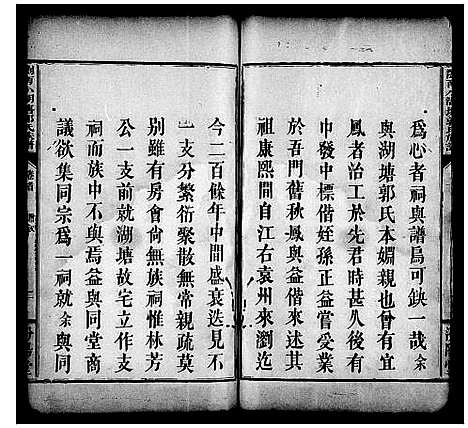 爲心者祠與譜爲可缺一哉余
與湖塘郭氏本姻親也曾有宜
鳳者治工於先君時甚久後有
中發中標偕姪孫正益嘗受業
於吾門舊秋鳳與益偕來述其
祖康熙間自江右袁州來瀏迄
今二百餘年中間盛衰迭見不
一支分繁衍聚散無常親疏莫
別雖有房會尙無族祠惟林芳
公一支前就湖塘故宅立作支
祠而族中不與焉益與同堂商
議欲集同宗爲一祠就余與同
卷首